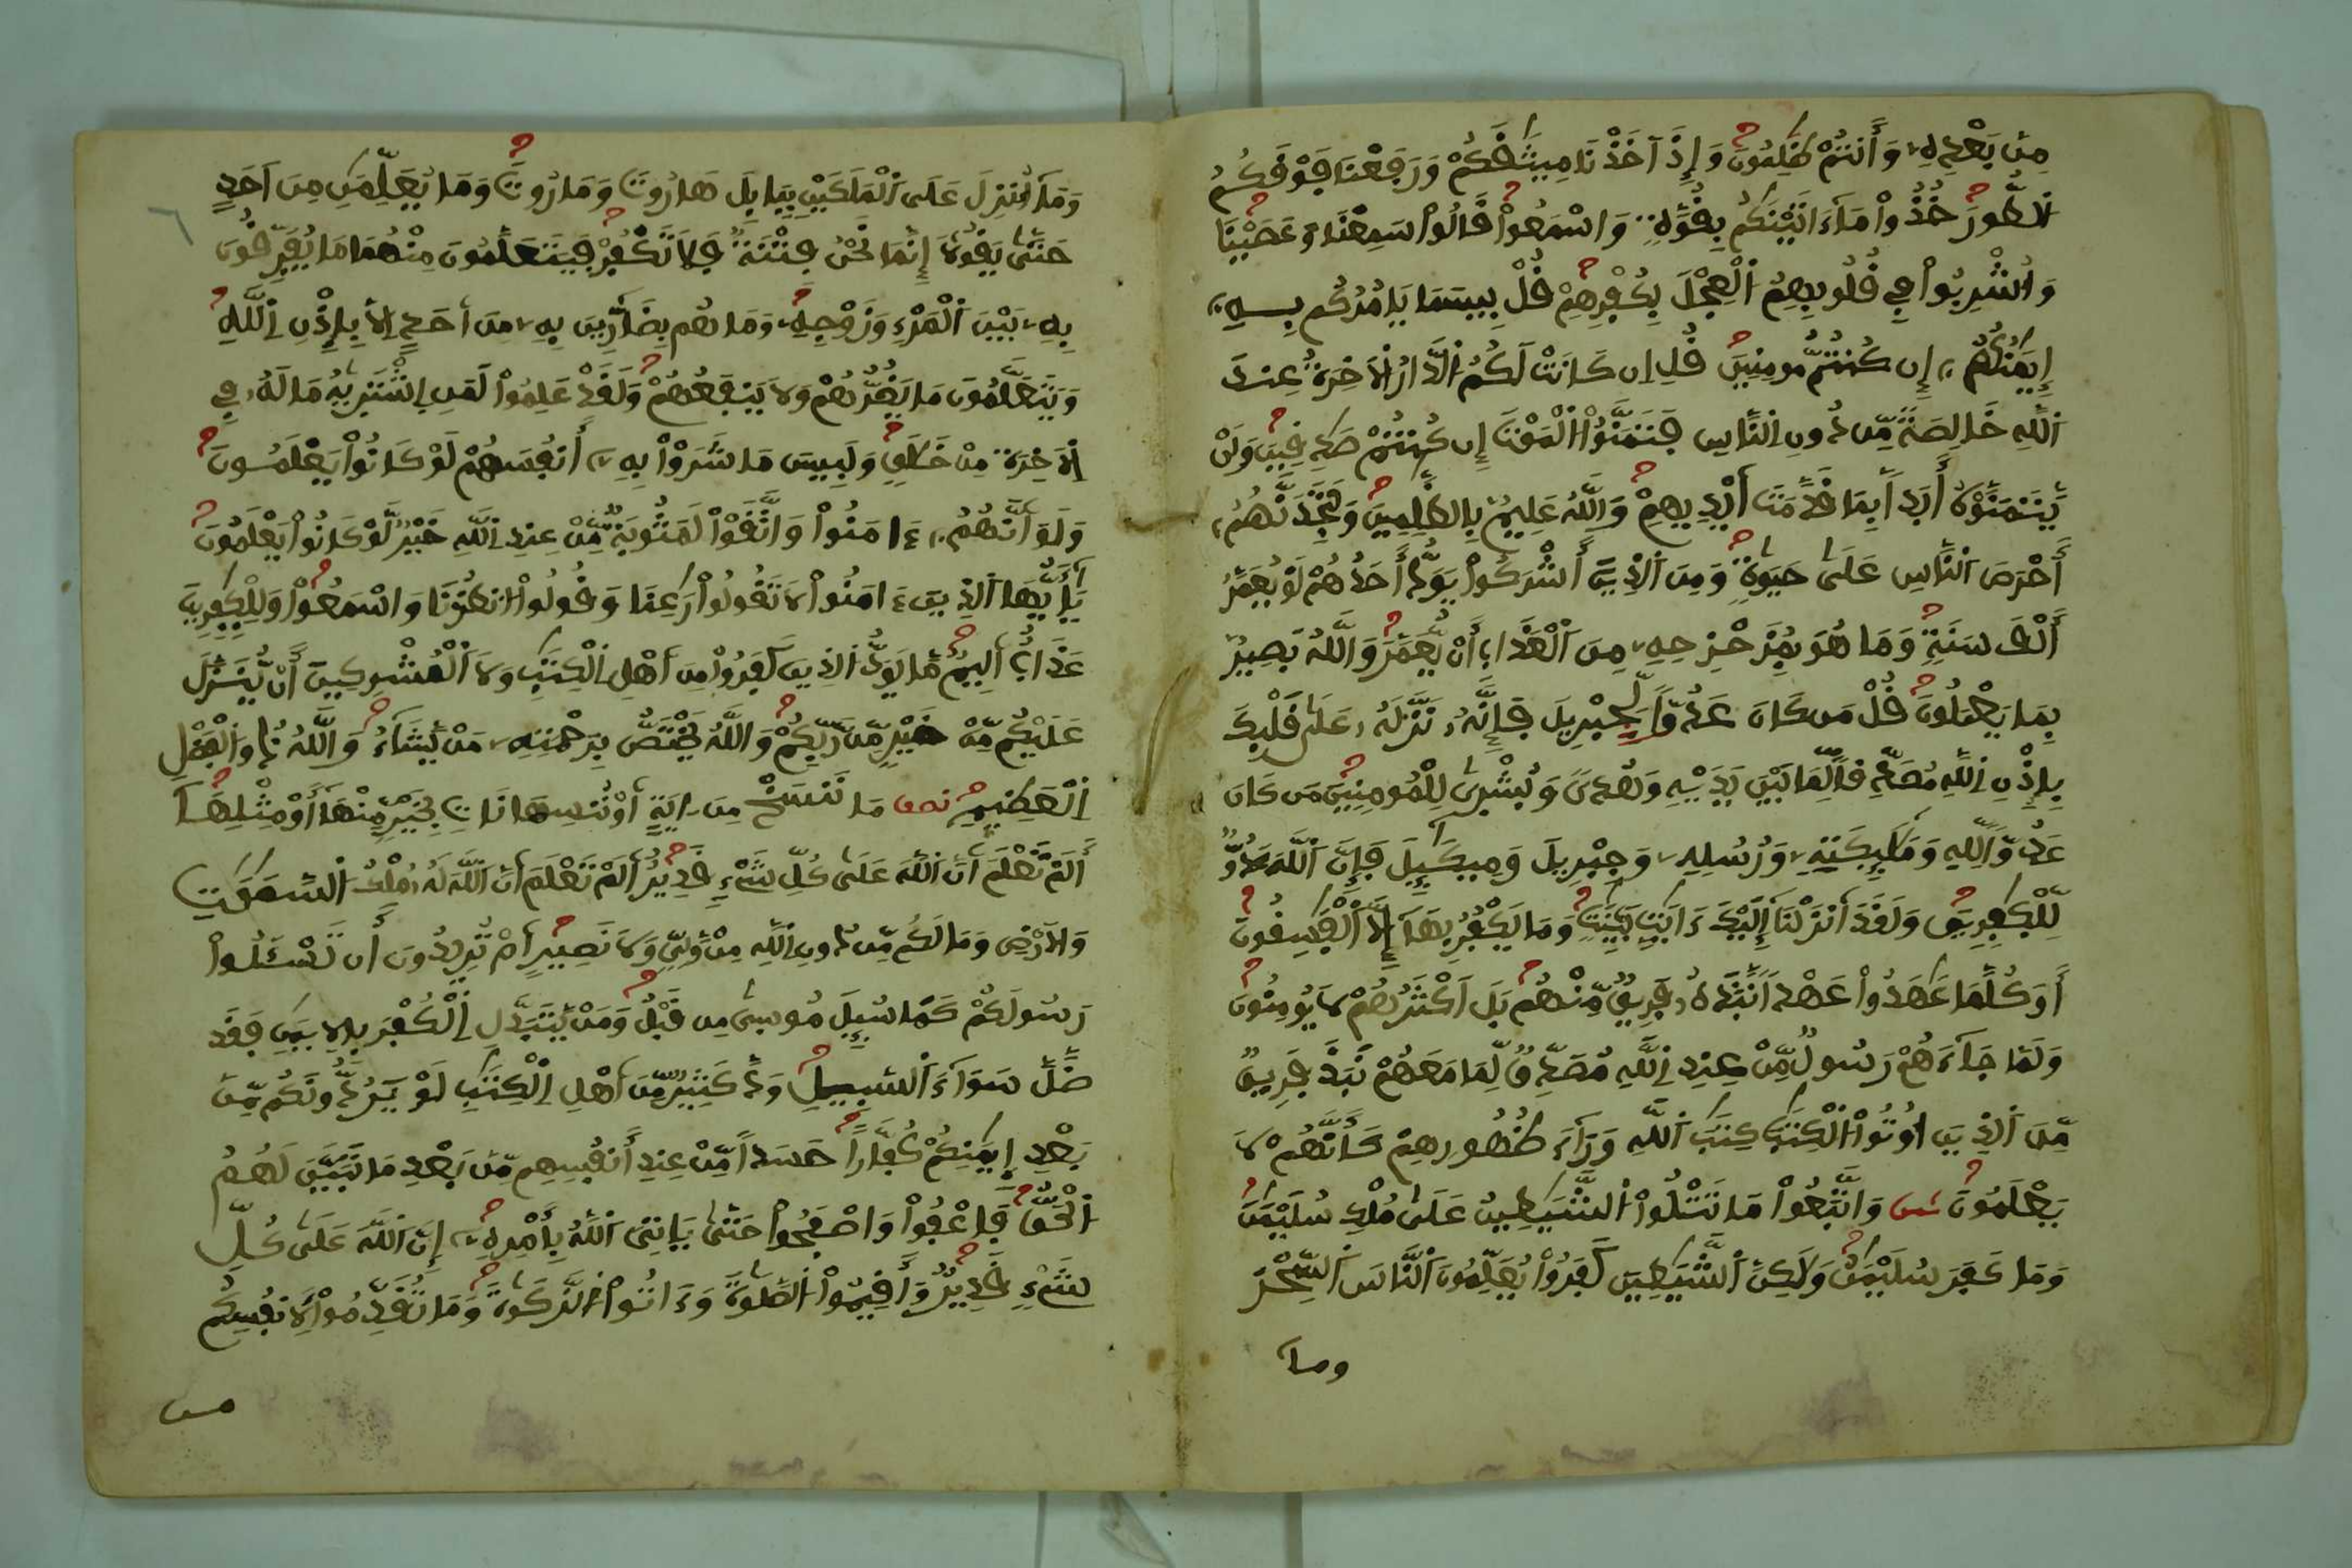 مِنۢ بَعْدِهِۦ وَأَنتُمْ ظَٰلِمُونَ وَإِذَ اَخَذْنَا مِيثَٰقَكُمْ وَرَفَعْنَا فَوْقَكُمُ
اُلطُّورَ خُذُواْ مَآ ءَاتَيْنَٰكُم بِقُوَّةٍ وَاسْمَعُواْ قَالُواْ سَمِعْنَا وَعَصَيْنَا
وَأُشْرِبُواْ فِي قُلُوبِهِمُ اُلْعِجْلَ بِكُفْرِهِمْ قُلْ بِيسَمَا يَامُرُكُم بِهِۦٓ
إِيمَٰنُكُمُۥٓ إِن كُنتُم مُّومِنِينَ قُلِ اِن كَانَتْ لَكُمُ اُلدَّارُ اُلَاخِرَةُ عِندَ
اَللَّهِ خَالِصَةً مِّن دُونِ اِلنَّاسِ فَتَمَنَّوُاْ اُلْمَوْتَ إِن كُنتُمْ صَٰدِقِينَ وَلَنْ
يَّتَمَنَّوْهُ أَبَداَۢ بِمَا قَدَّمَتَ اَيْدِيهِمْ وَاللَّهُ عَلِيمُۢ بِالظَّٰلِمِينَ وَلَتَجِدَنَّهُمُۥٓ
أَحْرَصَ اَلنَّاسِ عَلَىٰ حَيَوٰةٍ وَمِنَ اَلذِينَ أَشْرَكُواْ يَوَدُّ أَحَدُهُمْ لَوْ يُعَمَّرُ
أَلْفَ سَنَةٍ وَمَا هُوَ بِمُزَحْزِحِهِۦ مِنَ اَلْعَذَابِ أَنْ يُّعَمَّرَ وَاللَّهُ بَصِيرُۢ
بِمَا يَعْمَلُونَ قُلْ مَن كَانَ عَدُوّاً لِّجِبْرِيلَ فَإِنَّهُۥ نَزَّلَهُۥ عَلَىٰ قَلْبِكَ
بِإِذْنِ اِللَّهِ مُصَدِّقاً لِّمَا بَيْنَ يَدَيْهِ وَهُدىً وَبُشْرىٰ لِلْمُومِنِينَ مَن كَانَ
عَدُوّاً لِّلهِ وَمَلَٰٓئِكَتِهِۦ وَرُسُلِهِۦ وَجِبْرِيلَ وَمِيكَٰٓئِلَ فَإِنَّ اَللَّهَ عَدُوٌّ
لِّلْكَٰفِرِينَ وَلَقَدَ اَنزَلْنَآ إِلَيْكَ ءَايَٰتِۢ بَيِّنَٰتٍ وَمَا يَكْفُرُ بِهَآ إِلَّا اَلْفَٰسِقُونَ
أَوَكُلَّمَا عَٰهَدُواْ عَهْداً نَّبَذَهُۥ فَرِيقٌ مِّنْهُم بَلَ اَكْثَرُهُمْ لَا يُومِنُونَ
وَلَمَّا جَآءَهُمْ رَسُولٌ مِّنْ عِندِ اِللَّهِ مُصَدِّقٌ لِّمَا مَعَهُمْ نَبَذَ فَرِيقٌ
مِّنَ اَلذِينَ أُوتُواْ اُلْكِتَٰبَ كِتَٰبَ اَللَّهِ وَرَآءَ ظُهُورِهِمْ كَأَنَّهُمْ لَا
يَعْلَمُونَ ثمن وَاتَّبَعُواْ مَا تَتْلُواْ اُلشَّيَٰطِينُ عَلَىٰ مُلْكِ سُلَيْمَٰنَ
وَمَا كَفَرَ سُلَيْمَٰنُ وَلَٰكِنَّ اَلشَّيَٰطِينَ كَفَرُواْ يُعَلِّمُونَ اَلنَّاسَ اَلسِّحْرَ
وما
وَمَآ أُنزِلَ عَلَى اَلْمَلَكَيْنِ بِبَابِلَ هَٰرُوتَ وَمَٰرُوتَ وَمَا يُعَلِّمَٰنِ مِنَ اَحَدٍ
حَتَّىٰ يَقُولَآ إِنَّمَا نَحْنُ فِتْنَةٌ فَلَا تَكْفُرْ فَيَتَعَلَّمُونَ مِنْهُمَا مَا يُفَرِّقُونَ
بِهِۦ بَيْنَ اَلْمَرْءِ وَزَوْجِهِۦ وَمَا هُم بِضَآرِّينَ بِهِۦ مِنَ اَحَدٍ اِلَّا بِإِذْنِ اِللَّهِ
وَيَتَعَلَّمُونَ مَا يَضُرُّهُمْ وَلَا يَنفَعُهُمْ وَلَقَدْ عَلِمُواْ لَمَنِ اِشْتَرَىٰهُ مَا لَهُۥ فِي
اِلَاخِرَةِ مِنْ خَلَٰقٍ وَلَبِيسَ مَا شَرَوْاْ بِهِۦٓ أَنفُسَهُمْ لَوْ كَانُواْ يَعْلَمُونَ
وَلَوَ اَنَّهُمُۥٓ ءَامَنُواْ وَاتَّقَوْاْ لَمَثُوبَةٌ مِّنْ عِندِ اِللَّهِ خَيْرٌ لَّوْ كَانُواْ يَعْلَمُونَ
يَٰٓأَيُّهَا اَلذِينَ ءَامَنُواْ لَا تَقُولُواْ رَٰعِنَا وَقُولُواْ اُنظُرْنَا وَاسْمَعُواْ وَلِلْكٰفِرِينَ
عَذَابٌ اَلِيمٌ مَّا يَوَدُّ اُلذِينَ كَفَرُواْ مِنَ اَهْلِ اِلْكِتَٰبِ وَلَا اَلْمُشْرِكِينَ أَنْ يُّنَزَّلَ
عَلَيْكُم مِّنْ خَيْرٍ مِّن رَّبِّكُمْ وَاللَّهُ يَخْتَصُّ بِرَحْمَتِهِۦ مَنْ يَّشَآءُ وَاللَّهُ ذُو اُلْفَضْلِ
اِلْعَظِيمِ نصف مَا نَنسَخْ مِنَ ايَةٍ اَوْ نُنسِهَا نَاتِ بِخَيْرٍ مِّنْهَآ أَوْ مِثْلِهَآ
أَلَمْ تَعْلَمَ اَنَّ اَللَّهَ عَلَىٰ كُلِّ شَےْءٍ قَدِيرٌ اَلَمْ تَعْلَمَ اَنَّ اَللَّهَ لَهُۥ مُلْكُ اُلسَّمَٰوَٰتِ
وَالَارْضِ وَمَا لَكُم مِّن دُونِ اِللَّهِ مِنْ وَّلِيٍّ وَلَا نَصِيرٍ اَمْ تُرِيدُونَ أَن تَسْـَٔلُواْ
رَسُولَكُمْ كَمَا سُئِلَ مُوسىٰ مِن قَبْلُ وَمَنْ يَّتَبَدَّلِ اِلْكُفْرَ بِالِايمَٰنِ فَقَد
ضَّلَّ سَوَآءَ اَلسَّبِيلِ وَدَّ كَثِيرٌ مِّنَ اَهْلِ اِلْكِتَٰبِ لَوْ يَرُدُّونَكُم مِّنۢ
بَعْدِ إِيمَٰنِكُمْ كُفَّاراً حَسَداً مِّنْ عِندِ أَنفُسِهِم مِّنۢ بَعْدِ مَا تَبَيَّنَ لَهُمُ
اُلْحَقُّ فَاعْفُواْ وَاصْفَحُواْ حَتَّىٰ يَاتِيَ اَللَّهُ بِأَمْرِهِۦٓ إِنَّ اَللَّهَ عَلَىٰ كُلِّ
شَےْءٍ قَدِيرٌ وَأَقِيمُواْ اُلصَّلَوٰةَ وَءَاتُواْ اُلزَّكَوٰةَ وَمَا تُقَدِّمُواْ لِأَنفُسِكُم
من